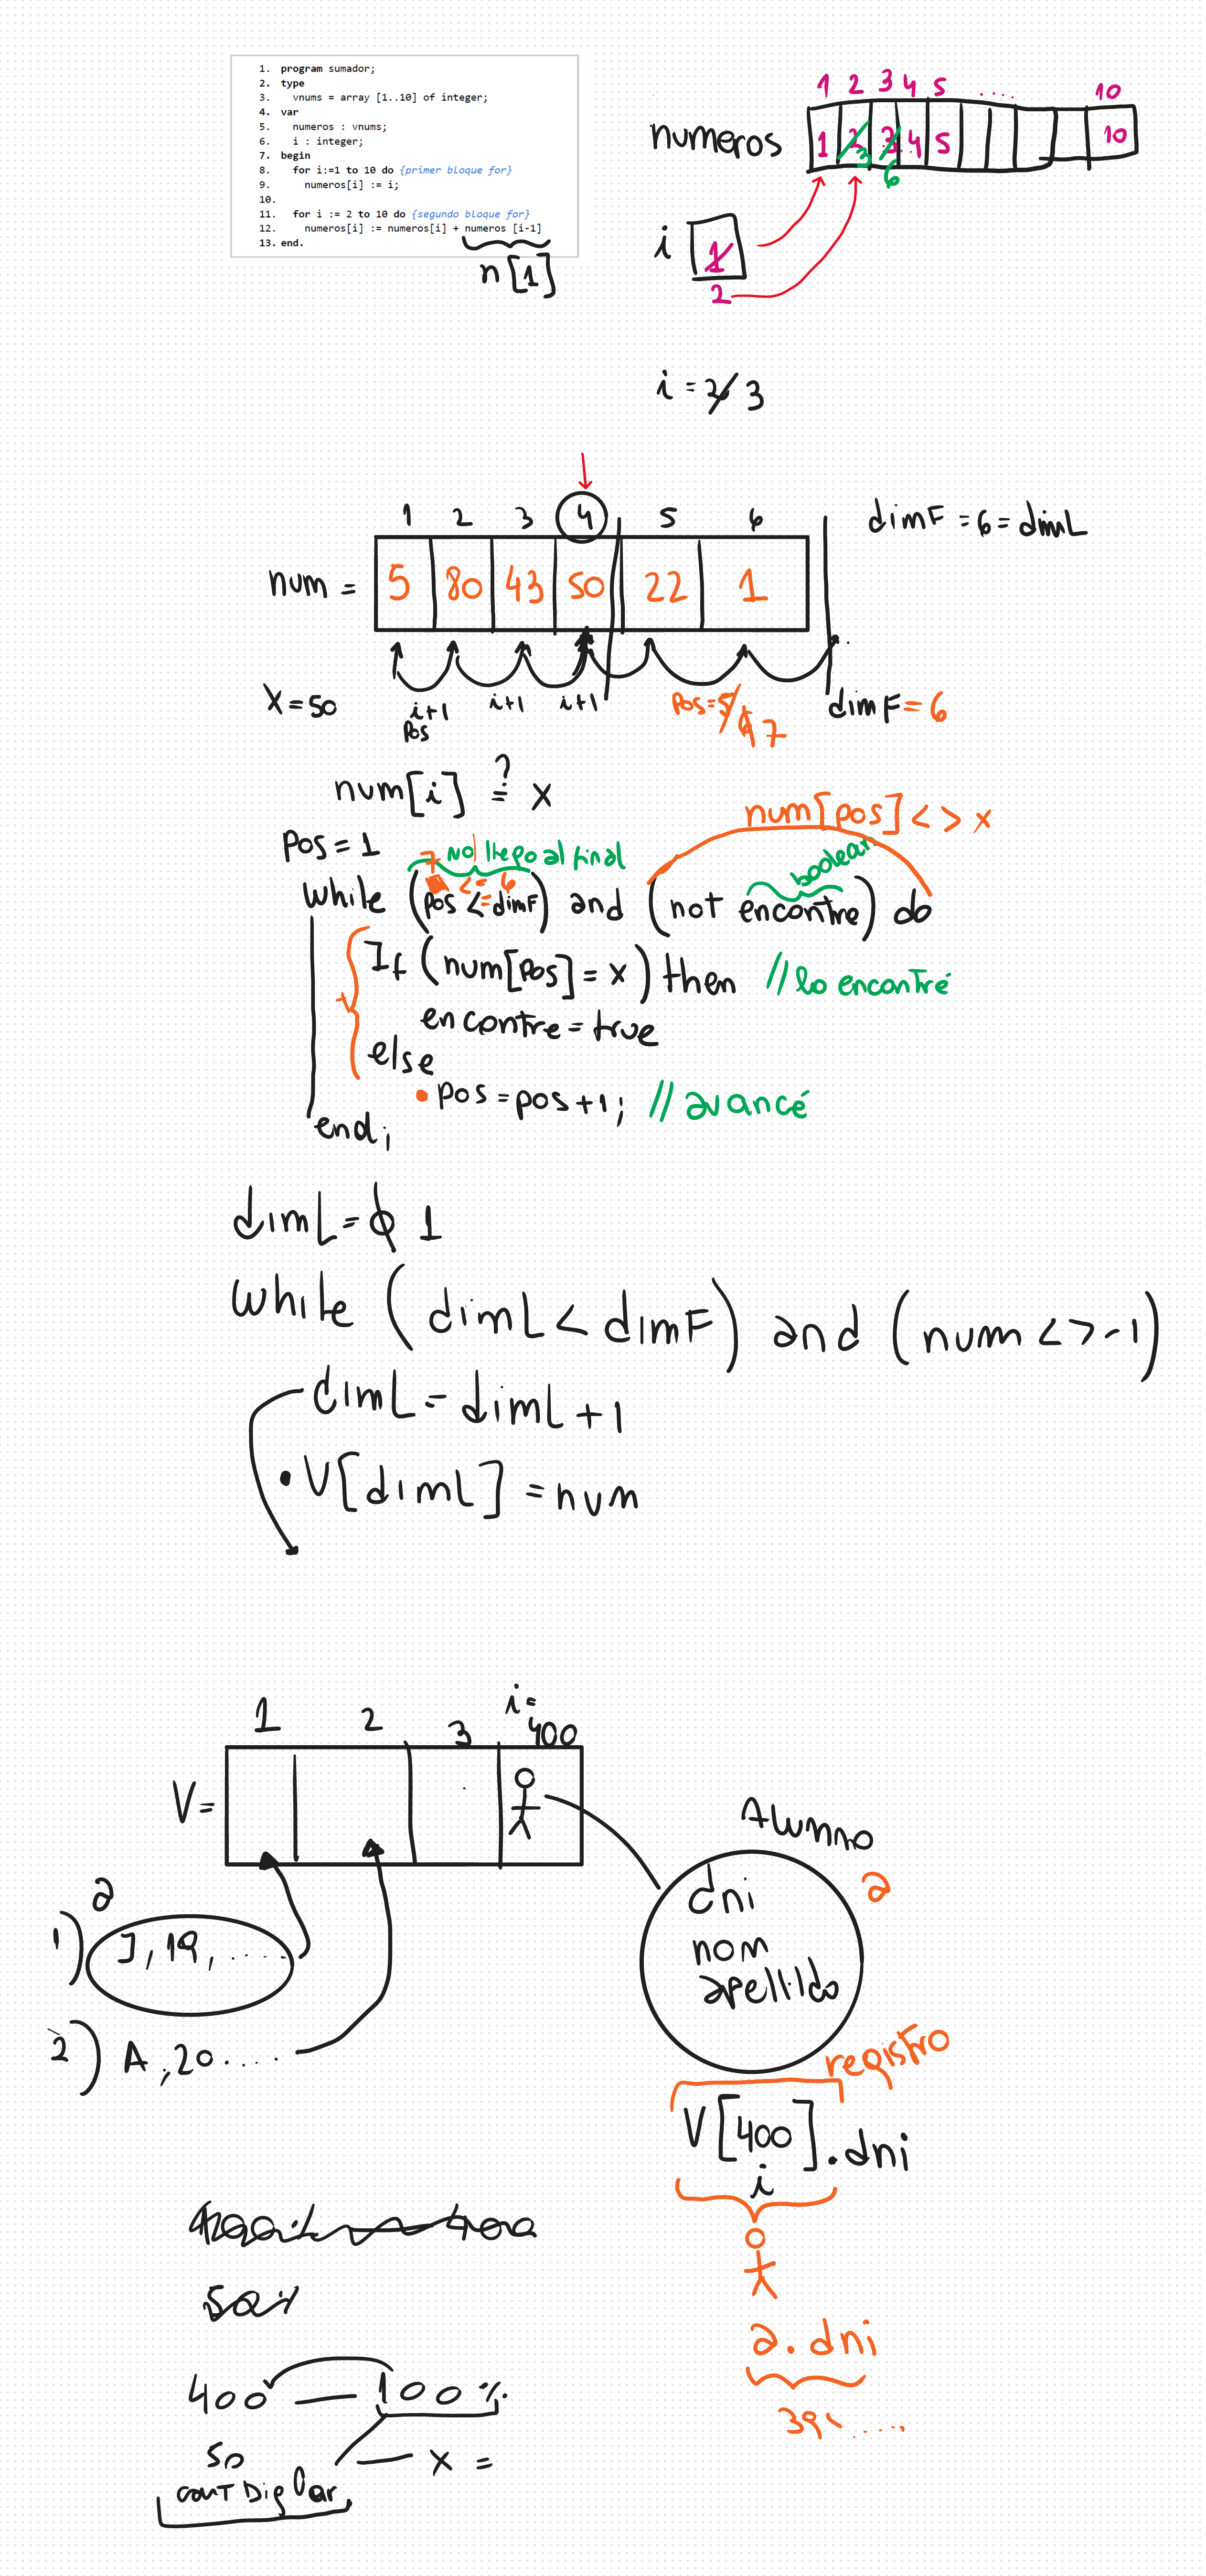 1. program sumador;
2. type
3. vnums = array [1..10] of integer;
4. var
5. numeros : vnums;
6. i : integer;
7. begin
8. for i:=1 to 10 do {primer bloque for}
9. numeros[i] := i;
10.
11. for i := 2 to 10 do {segundo bloque for}
12. numeros[i] := numeros[i] + numeros [i-1]
13. end.
n[1]
1 2 3 4 5 ..... 10
numeros 1 2 3 4 5 10
3 6
i 1
2
i = 2 3
1 2 3 4 5 6
dimF = 6 = dimL
num = 5 80 43 50 22 1
X = 50
i+1 i+1 i+1
Pos
Pos = 5 6 7
dimF = 6
num[i] = x
?
num[pos] < > x
Pos = 1
7 no llego al final
<= 6
boolean
while (pos <= dimF) and (not encontre) do
If (num[pos] = x) then //lo encontré
encontre = true
else
pos = pos+1; //avancé
end;
dimL = 0 1
while (dimL < dimF) and (num < > -1)
dimL = dimL + 1
V[dimL] = num
1 2 3 i = 400
V =
Alumno
a
dni
nom
apellido
a
1) J, 19, .....
2) A, 20 .....
registro
V[400].dni
i
a.dni
39.....
400 — 100 %
50 — X =
cantDigPar